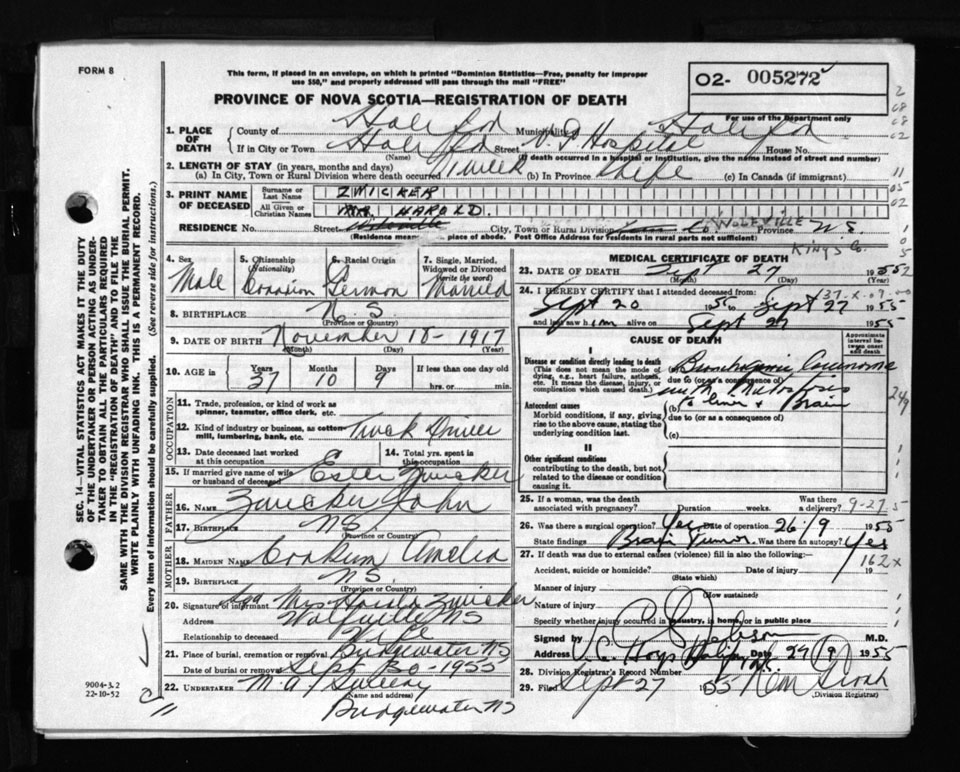 FORM 8
This form, if placed in an envelope, on which is printed "Dominion Statistics—Free, penalty for improper
use $50," and properly addressed will pass through the mail "FREE"
O2- 005272
PROVINCE OF NOVA SCOTIA—REGISTRATION OF DEATH
For use of the Department only
1. PLACE OF DEATH
County of Halifax Municipality of Halifax
If in City or Town Halifax Street V. G. Hospital House No.
(Name) (If death occurred in a hospital or institution, give the name instead of street and number)
2. LENGTH OF STAY (in years, months and days)
(a) In City, Town or Rural Division where death occurred 1 week (b) In Province Life (c) In Canada (if immigrant)
3. PRINT NAME OF DECEASED
Surname or Last Name ZWICKER
All Given or Christian Names HAROLD.
RESIDENCE No. Street City, Town or Rural Division WOLFVILLE Province N.S.
(Residence means place of abode. Post Office Address for residents in rural parts not sufficient)
KINGS Co.
4. Sex Male
5. Citizenship (Nationality) Canadian
6. Racial Origin German
7. Single, Married, Widowed or Divorced (Write the word) Married
8. BIRTHPLACE N.S.
(Province or Country)
9. DATE OF BIRTH November 18 - 1917
(Month) (Day) (Year)
10. AGE in Years 37 Months 10 Days 9 If less than one day hrs. or min.
11. Trade, profession, or kind of work as spinner, teamster, office clerk, etc.
12. Kind of industry or business, as cotton-mill, lumbering, bank, etc. Truck Driver
13. Date deceased last worked at this occupation
14. Total yrs. spent in this occupation
15. If married give name of wife or husband of deceased Zwicker
FATHER
16. Name Zwicker John
17. Birthplace N.S.
(Province or Country)
MOTHER
18. MAIDEN NAME Amelia
19. BIRTHPLACE N.S.
(Province or Country)
20. Signature of informant Mrs Harold Zwicker
Address Wolfville NS
Relationship to deceased Wife
21. Place of burial, cremation or removal Bridgewater NS
Date of burial or removal Sept 30 - 1955
22. UNDERTAKER M. A. Sweeny
(Name and address)
Bridgewater NS
MEDICAL CERTIFICATE OF DEATH
23. DATE OF DEATH Sept 27 1955
(Month) (Day) (Year)
24. I HEREBY CERTIFY that I attended deceased from:
Sept 20 1955 to Sept 27 1955
and last saw him alive on Sept 27 1955
CAUSE OF DEATH
Approximate interval between onset and death
I
Disease or condition directly leading to death
(This does not mean the mode of dying, e.g., heart failure, asthenia, etc. It means the disease, injury, or complication which caused death.)
Bronchogenic Carcinoma
due to (or as a consequence of)
Antecedent causes
Morbid conditions, if any, giving rise to the above cause, stating the underlying condition last.
(b) Brain
due to (or as a consequence of)
(c)
II
Other significant conditions
contributing to the death, but not related to the disease or condition causing it.
25. If a woman, was the death associated with pregnancy? Duration weeks. Was there a delivery?
9-27-5
26. Was there a surgical operation? Yes Date of operation 26/9 1955
State findings Brain Tumor. Was there an autopsy? Yes
27. If death was due to external causes (violence) fill in also the following:—
162x
Accident, suicide or homicide? Date of injury 19
(State which)
Manner of injury
(How sustained)
Nature of injury
Specify whether injury occurred in industry, in home, or in public place
Signed by M.D.
Address Halifax Date 27/9/1955
28. Division Registrar's Record Number
29. Filed Sept 27 1955
(Division Registrar)
SEC. 14—VITAL STATISTICS ACT MAKES IT THE DUTY
OF THE UNDERTAKER OR PERSON ACTING AS UNDER-
TAKER TO OBTAIN ALL THE PARTICULARS REQUIRED
IN THE "REGISTRATION OF DEATH" AND TO FILE THE
SAME WITH THE DIVISION REGISTRAR WHO SHALL ISSUE THE BURIAL PERMIT.
WRITE PLAINLY WITH UNFADING INK. THIS IS A PERMANENT RECORD.
Every item of information should be carefully supplied. (See reverse side for instructions.)
9004-3.2
22-10-52